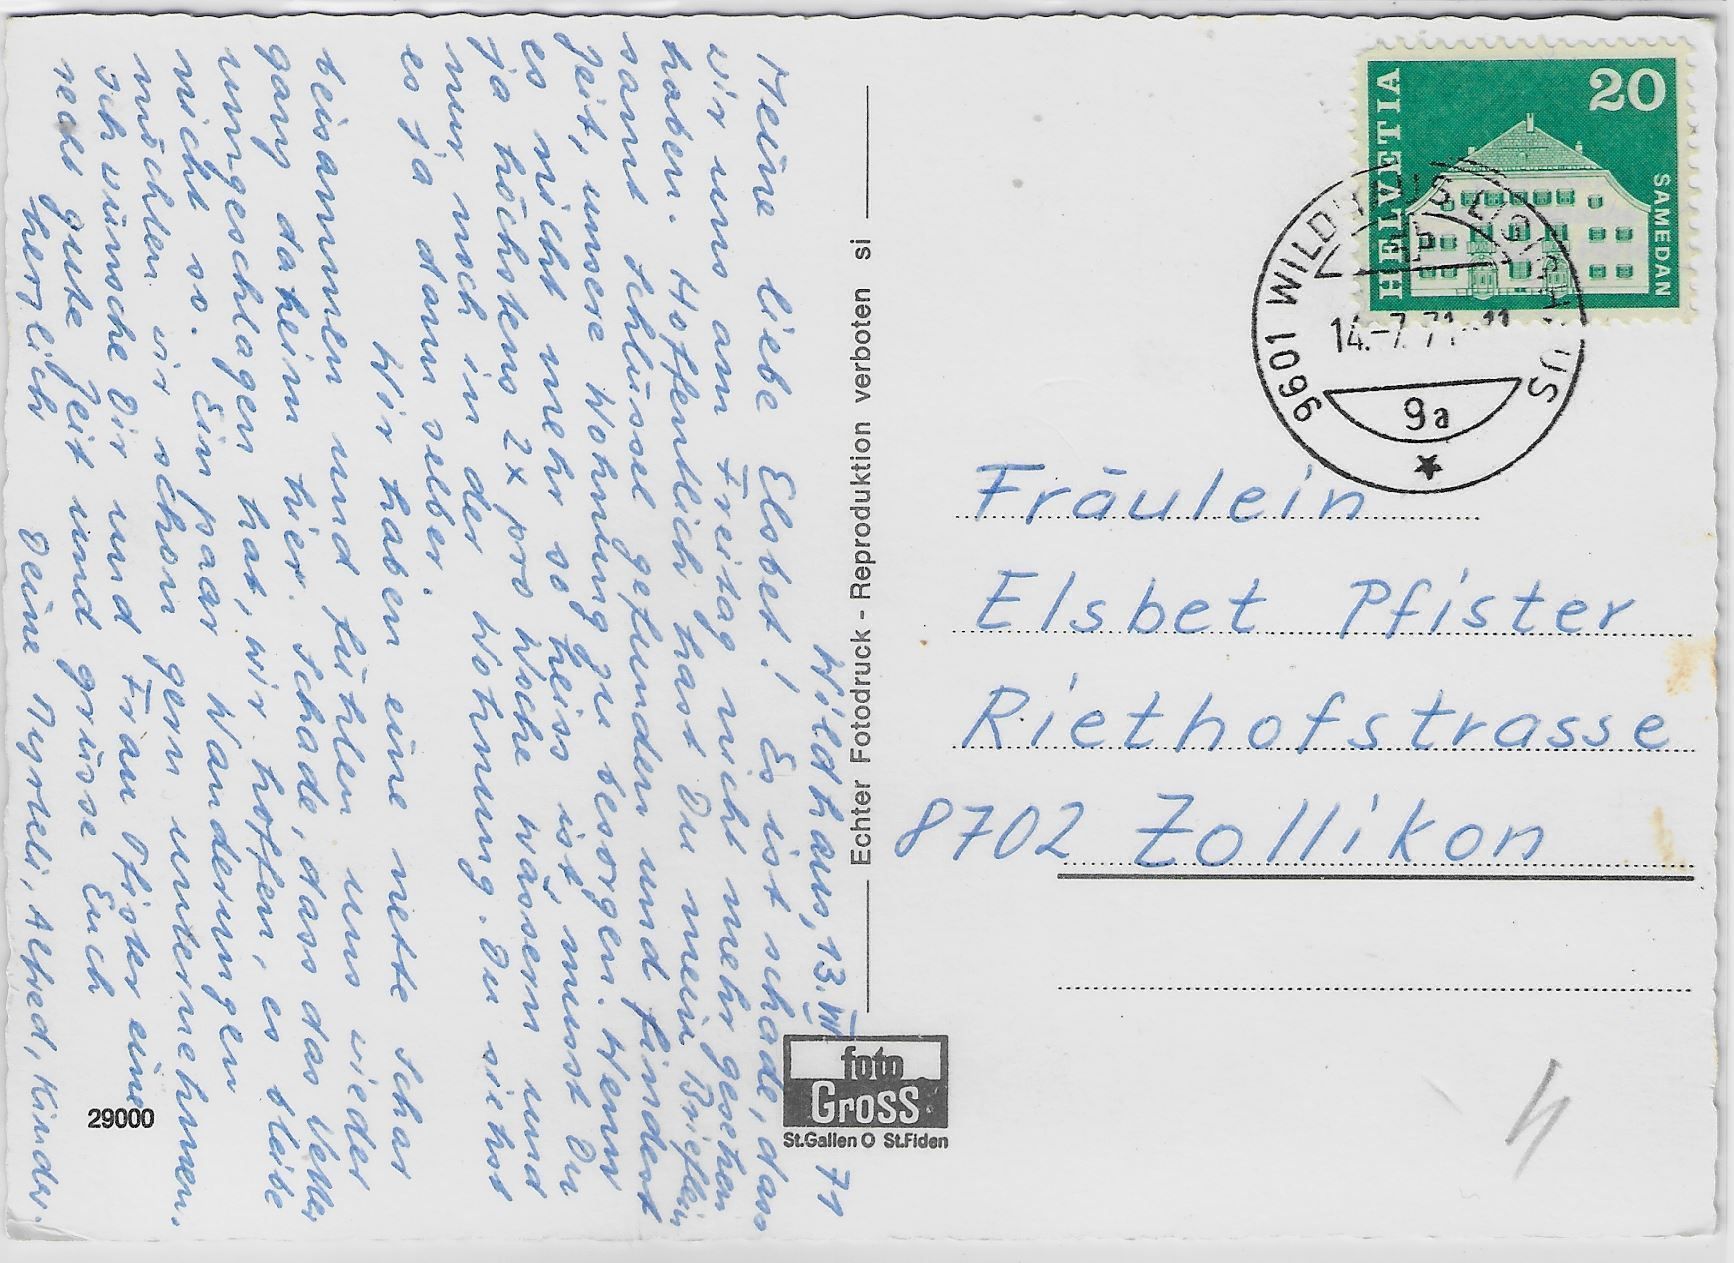 Wildhaus, 13. VII 71
Meine liebe Elsbet! Es ist schade, dass
wir uns am Freitag nicht mehr gesehen
haben. Hoffentlich hast Du mein Brieflein
samt Schlüssel gefunden und findest
Zeit, unsere Wohnung zu besorgen. Wenn
es nicht mehr so heiss ist, musst Du
ja höchstens 2x pro Woche wässern und
nur noch in der Wohnung. Du siehst
es ja dann selber.
Wir haben eine nette Schar
beisammen und fühlen uns wieder
ganz daheim hier. Schade, dass das Wetter
umgeschlagen hat, wir hoffen, es bleibe
nicht so. Ein paar Wanderungen
möchten wir schon gern unternehmen.
Ich wünsche Dir und Frau Pfister eine
recht gute Zeit und grüsse Euch
herzlich Deine Nyveli, Alfred, Kinder.
29000
Echter Fotodruck - Reproduktion verboten si
foto
Gross
St.Gallen O St.Fiden
HELVETIA
20
SAMEDAN
9601 WILDHAUS LISIGHAUS
14.-7.71-11
9a
Fräulein
Elsbet Pfister
Riethofstrasse
8702 Zollikon
4